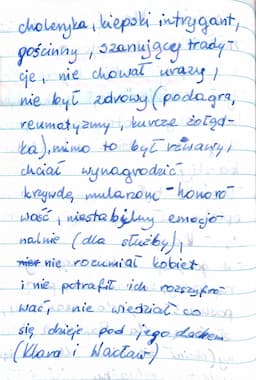 choleryka, kiepski intrygant,
gościnny, szanujący trady-
cje, nie chował urazy,
nie był zdrowy (podagra,
reumatyzmy, kurcze żołąd-
ka), mimo to był rześki,
chciał wynagrodzić
krzywdę mularzom - honoro
wość, niestabilny emocjo-
nalnie (dla służby),
nie rozumiał kobiet
i nie potrafił ich rozszyfro
wać, nie wiedział co
się dzieje pod jego dachem
(Klara i Wacław)